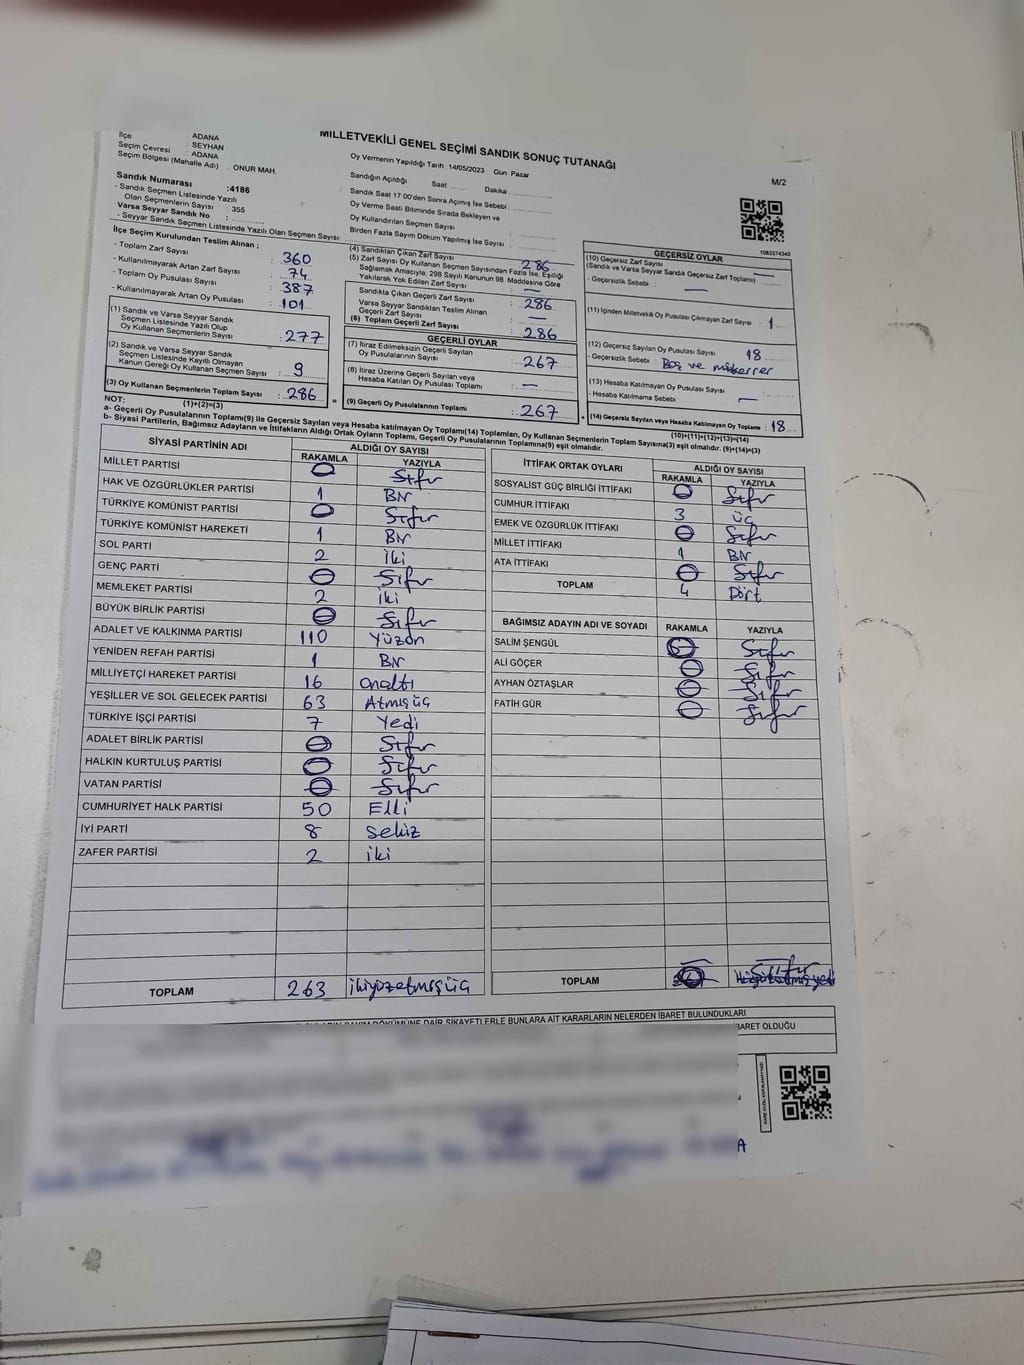 MİLLETVEKİLİ GENEL SEÇİMİ SANDIK SONUÇ TUTANAĞI
M/2
İlçe ADANA
Seçim Çevresi : SEYHAN
Seçim Bölgesi (Mahalle Adı) : ADANA
ONUR MAH.
Sandık Numarası :4186
- Sandık Seçmen Listesinde Yazılı
Olan Seçmenlerin Sayısı : 355
Varsa Seyyar Sandık No :
- Seyyar Sandık Seçmen Listesinde Yazılı Olan Seçmen Sayısı:
Oy Vermenin Yapıldığı Tarih :14/05/2023 Gün Pazar
Sandığın Açıldığı Saat:...... Dakika......
Sandık Saat 17 00'den Sonra Açımış İse Sebebi :
Oy Verme Saati Bitiminde Sırada Bekleyen ve
Oy Kullandırılan Seçmen Sayısı :
Birden Fazla Sayım Döküm Yapılmış İse Sayısı :
1083574343
İlçe Seçim Kurulundan Teslim Alınan ;
- Toplam Zarf Sayısı : 360
- Kullanılmayarak Artan Zarf Sayısı : 74
- Toplam Oy Pusulası Sayısı : 387
- Kullanılmayarak Artan Oy Pusulası : 101
(1) Sandık ve Varsa Seyyar Sandık
Seçmen Listesinde Yazılı Olup
Oy Kullanan Seçmenlerin Sayısı : 277
(2) Sandık ve Varsa Seyyar Sandık
Seçmen Listesinde Kayıtlı Olmayan
Kanun Gereği Oy Kullanan Seçmen Sayısı : 9
(3) Oy Kullanan Seçmenlerin Toplam Sayısı : 286
(1)+(2)=(3)
(4) Sandıktan Çıkan Zarf Sayısı : 286
(5) Zarf Sayısı Oy Kullanan Seçmen Sayısından Fazla İse, Eşitliği
Sağlamak Amacıyla, 298 Sayılı Kanunun 98. Maddesine Göre
Yakılarak Yok Edilen Zarf Sayısı : —
Sandıkta Çıkan Geçerli Zarf Sayısı : 286
Varsa Seyyar Sandıktan Teslim Alınan
Geçerli Zarf Sayısı : —
(6) Toplam Geçerli Zarf Sayısı : 286
GEÇERLİ OYLAR
(7) İtiraz Edilmeksizin Geçerli Sayılan
Oy Pusulalarının Sayısı : 267
(8) İtiraz Üzerine Geçerli Sayılan veya
Hesaba Katılan Oy Pusulası Toplamı : —
(9) Geçerli Oy Pusulalarının Toplamı : 267
GEÇERSİZ OYLAR
(10) Geçersiz Zarf Sayısı : —
(Sandık ve Varsa Seyyar Sandık Geçersiz Zarf Toplamı)
- Geçersizlik Sebebi : —
(11) İçinden Milletvekili Oy Pusulası Çıkmayan Zarf Sayısı : 1
(12) Geçersiz Sayılan Oy Pusulası Sayısı : 18
- Geçersizlik Sebebi : Boş ve mükerrer
(13) Hesaba Katılmayan Oy Pusulası Sayısı :
- Hesaba Katılmama Sebebi : —
(14) Geçersiz Sayılan veya Hesaba Katılmayan Oy Toplamı : 18
(10)+(11)+(12)+(13)=(14)
NOT:
a- Geçerli Oy Pusulalarının Toplamı(9) ile Geçersiz Sayılan veya Hesaba katılmayan Oy Toplamı(14) Toplamları, Oy Kullanan Seçmenlerin Toplam Sayısına(3) eşit olmalıdır. (9)+(14)=(3)
b- Siyasi Partilerin, Bağımsız Adayların ve İttifakların Aldığı Ortak Oyların Toplamı, Geçerli Oy Pusulalarının Toplamına(9) eşit olmalıdır.
SİYASİ PARTİNİN ADI ALDIĞI OY SAYISI
RAKAMLA YAZIYLA
MİLLET PARTİSİ 0 Sıfır
HAK VE ÖZGÜRLÜKLER PARTİSİ 1 Bir
TÜRKİYE KOMÜNİST PARTİSİ 0 Sıfır
TÜRKİYE KOMÜNİST HAREKETİ 1 Bir
SOL PARTİ 2 iki
GENÇ PARTİ 0 Sıfır
MEMLEKET PARTİSİ 2 iki
BÜYÜK BİRLİK PARTİSİ 0 Sıfır
ADALET VE KALKINMA PARTİSİ 110 Yüzon
YENİDEN REFAH PARTİSİ 1 Bir
MİLLİYETÇİ HAREKET PARTİSİ 16 Onaltı
YEŞİLLER VE SOL GELECEK PARTİSİ 63 Atmışüç
TÜRKİYE İŞÇİ PARTİSİ 7 Yedi
ADALET BİRLİK PARTİSİ 0 Sıfır
HALKIN KURTULUŞ PARTİSİ 0 Sıfır
VATAN PARTİSİ 0 Sıfır
CUMHURİYET HALK PARTİSİ 50 Elli
İYİ PARTİ 8 Sekiz
ZAFER PARTİSİ 2 iki
TOPLAM 263 ikiyüzatmışüç
İTTİFAK ORTAK OYLARI ALDIĞI OY SAYISI
RAKAMLA YAZIYLA
SOSYALİST GÜÇ BİRLİĞİ İTTİFAKI 0 Sıfır
CUMHUR İTTİFAKI 3 üç
EMEK VE ÖZGÜRLÜK İTTİFAKI 0 Sıfır
MİLLET İTTİFAKI 1 Bir
ATA İTTİFAKI 0 Sıfır
TOPLAM 4 Dört
BAĞIMSIZ ADAYIN ADI VE SOYADI RAKAMLA YAZIYLA
SALİM ŞENGÜL 0 Sıfır
ALİ GÖÇER 0 Sıfır
AYHAN ÖZTAŞLAR 0 Sıfır
FATİH GÜR 0 Sıfır
TOPLAM Sıfır
DÖKÜMÜNE DAİR ŞİKAYETLERLE BUNLARA AİT KARARLARIN NELERDEN İBARET BULUNDUKLARI
BARET OLDUĞU